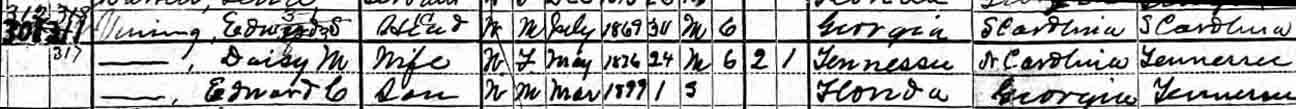 Vining, Edward S Head W M July 1869 30 M 6 Georgia S Carolina S Carolina
317 ——, Daisy M Wife W F May 1876 24 M 6 2 1 Tennessee N Carolina Tennessee
——, Edward C Son W M Mar 1899 1 S Florida Georgia Tennessee